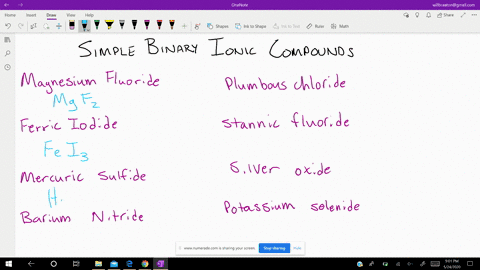 OneNote
File Home Insert Draw View Help
Shapes Ink to Shape Ink to Text Math Ruler
SIMPLE BINARY IONIC COMPOUNDS
Magnesium Fluoride
MgF2
Ferric Iodide
FeI3
Mercuric Sulfide
H
Barium Nitride
Plumbous chloride
Stannic fluoride
Silver oxide
Potassium selenide
www.numerade.com is sharing your screen. Stop sharing Hide
9:01 PM
5/24/2020